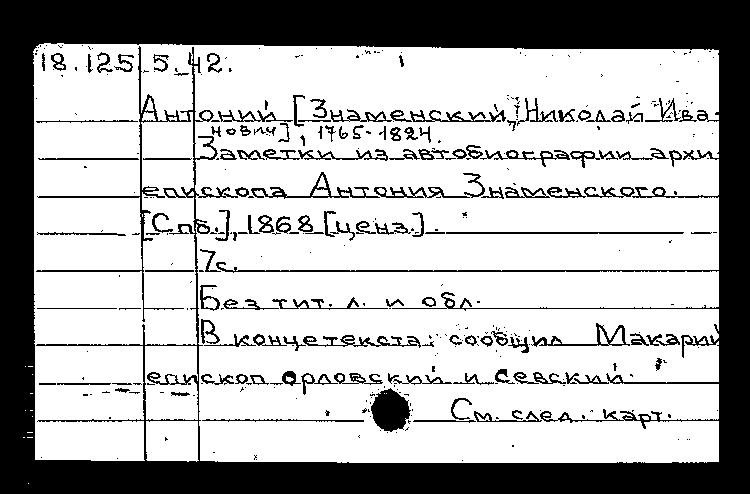 18.125.5.42.
Антоний [Знаменский, Николай Ива-
нович], 1765-1824.
Заметки из автобиографии архи
епископа Антония Знаменского.
[Спб.], 1868 [ценз.].
7с.
Без тит. л. и обл.
В конце текста: сообщил Макарий
епископ орловский и севский.
См. след. карт.